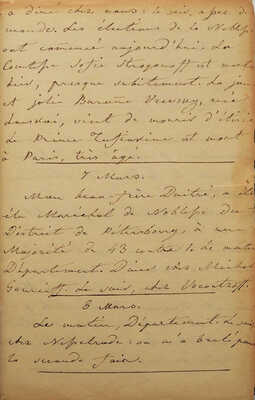 a diné chez nous: le soir, assez de
monde. Les élections de la Noblesse
ont commencé aujourd'hui. La
Comtesse Sofie Stroganoff est morte
hier, presque subitement. La jeune
et jolie Baronne née
vient de mourir
Le Prince est mort
à Paris, très agé.
7 Mars.
Mon beau-frère Dmitri, a été
élu Maréchal de Noblesse du
District de Petersbourg, à une
Majorité de 43 contre Le matin
Département. Dîner chez Michel
Le soir, chez
6 Mars.
Le matin, Département. Le soir
chez Nesselrode: on m'a
la seconde fois.